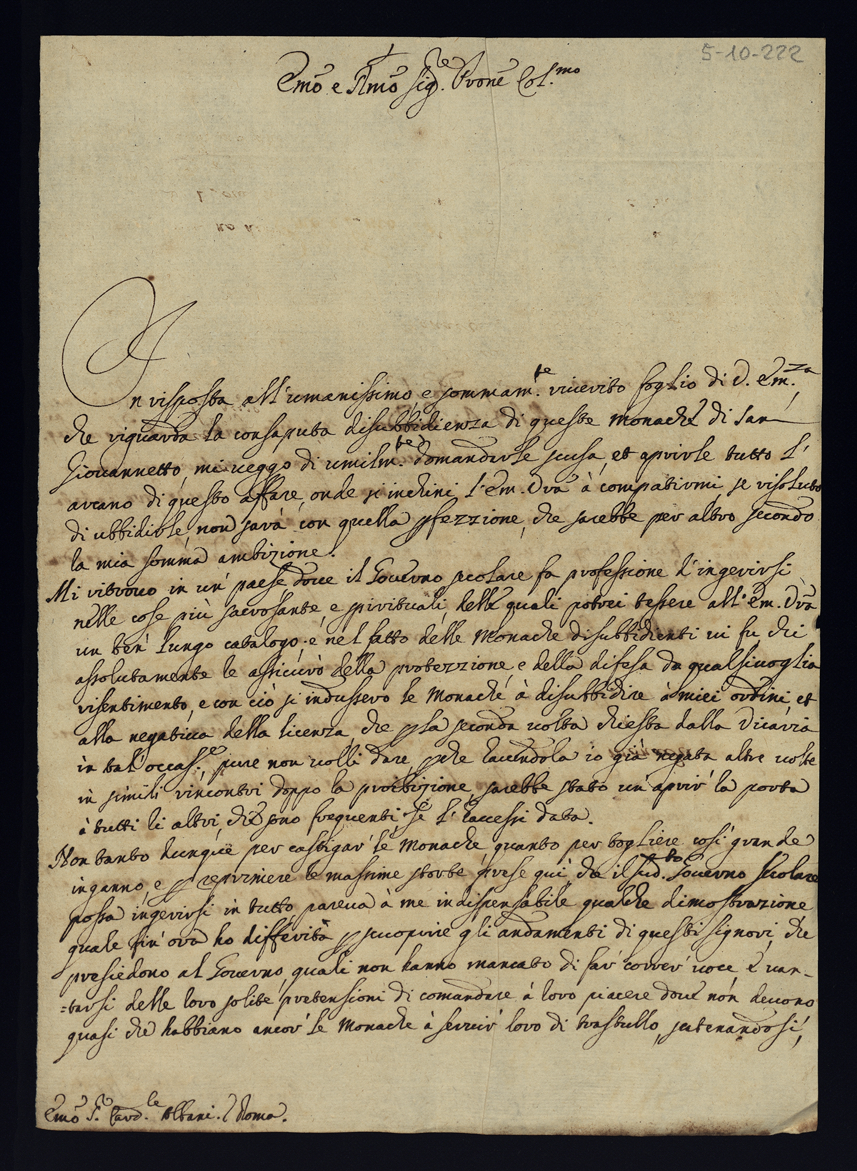 5-10-222
Emo e Rmo Sig.re Prone Col.mo
In risposta all'umanissimo e sommam.te riverito foglio di V. Em.za
che riguarda la consaputa disubbidienza di queste Monache di San
Giovannetto, mi veggo di umilm.te domandarle scusa, et aprirle tutto l'
arcano di questo affare, onde si inchini l'Em. Vra à compatirmi, se risoluto
di ubbidirle, non sarà con quella pfezzione, che sarebbe per altro secondo
la mia somma ambizione.
Mi ritrovo in un paese dove il Governo secolare fa professione d'ingerirsi
nelle cose più sacrosante, e spirituali, delle quali potrei tessere all'Em. Vra
un ben lungo catalogo; e nel fatto delle Monache disubbidienti vi fu chi
assolutamente le assicurò della protezzione, e della difesa da qualsivoglia
risentimento, e con ciò si indussero le Monache à disubbidire à miei ordini, et
alla negativa della licenza, che p la seconda volta chiesta dalla Vicaria
in tal'occas.e pure non volli dare, pche havendola io già negata altre volte
in simili rincontri doppo la proibizione, sarebbe stato un aprir la porta
à tutti li altri, che sono frequenti se l'havessi data.
Non tanto dunque per castigar le Monache quanto per togliere così grande
inganno, e p reprimere le massime storte sparse quì che il sud.to Governo secolare
possa ingerirsi in tutto, pareva à me indispensabile qualche dimostrazione
quale fin'ora ho differita p scuoprire gli andamenti di questi signori, che
presiedono al Governo, quali non hanno mancato di far correr voce e van-
=tarsi delle loro solite pretensioni di comandare à loro piacere dove non devono
quasi che habbiano ancor le Monache à servir loro di trastullo,
Emo S.r Card.le Albani. Roma.